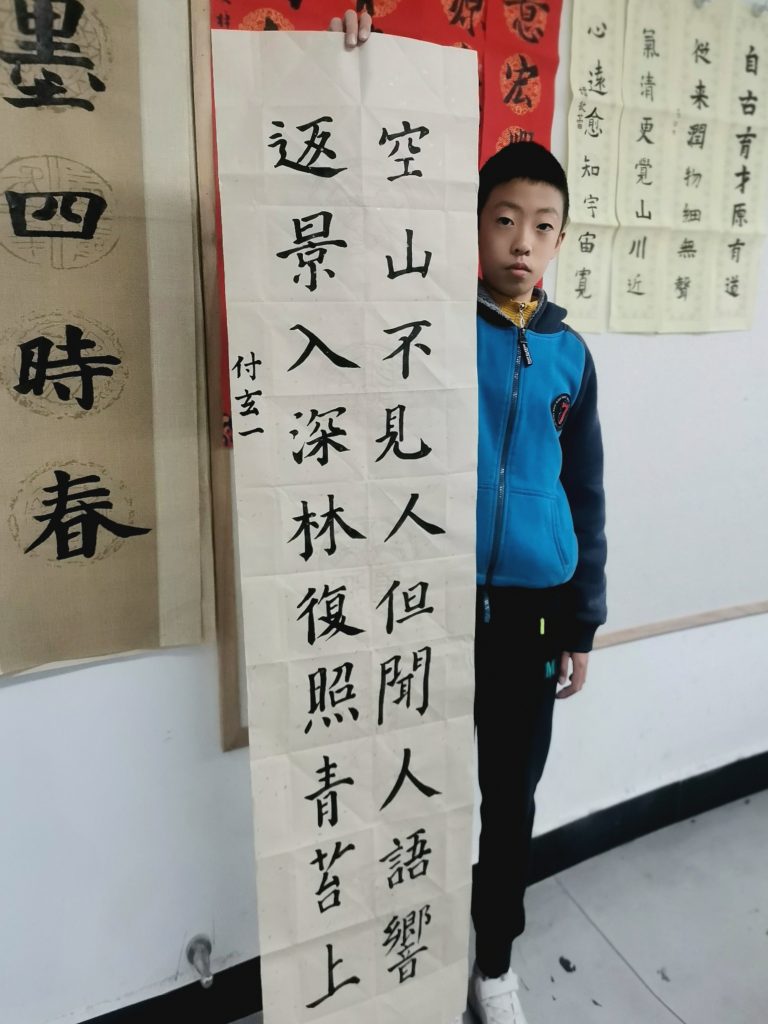 空山不見人但聞人語響
返景入深林復照青苔上
付玄一
自古育才原有道
從来潤物細無聲
氣清更覺山川近
心遠愈知宇宙寬
意宏
墨四時春
M